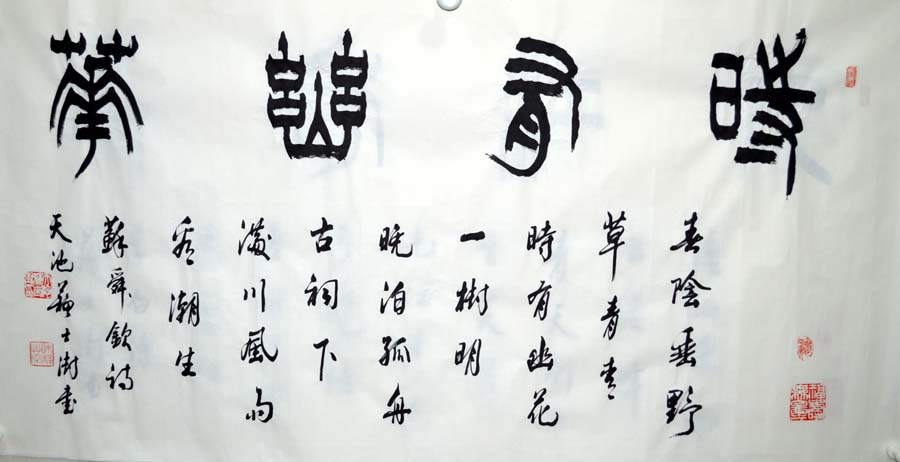 時有幽華
春陰垂野
草青青
時有幽花
一樹明
晚泊孤舟
古祠下
滿川風雨
看潮生
蘇舜欽詩
天池蘇士澍書